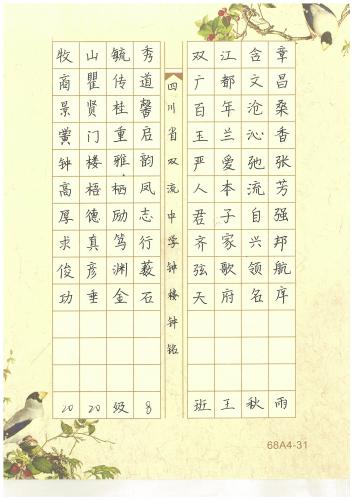 四川省双流中学钟楼钟铭
牧山毓秀 双江含章
商瞿传道 广都文昌
景贤桂馨 百年沧桑
黉门重启 玉兰沁香
钟楼雅韵 严爱弛张
高梧栖凤 人本流芳
厚德励志 君子自强
求真笃行 齐家兴邦
俊彦渊薮 弦歌领航
功垂金石 天府名序
2020级8 班王秋雨
68A4-31